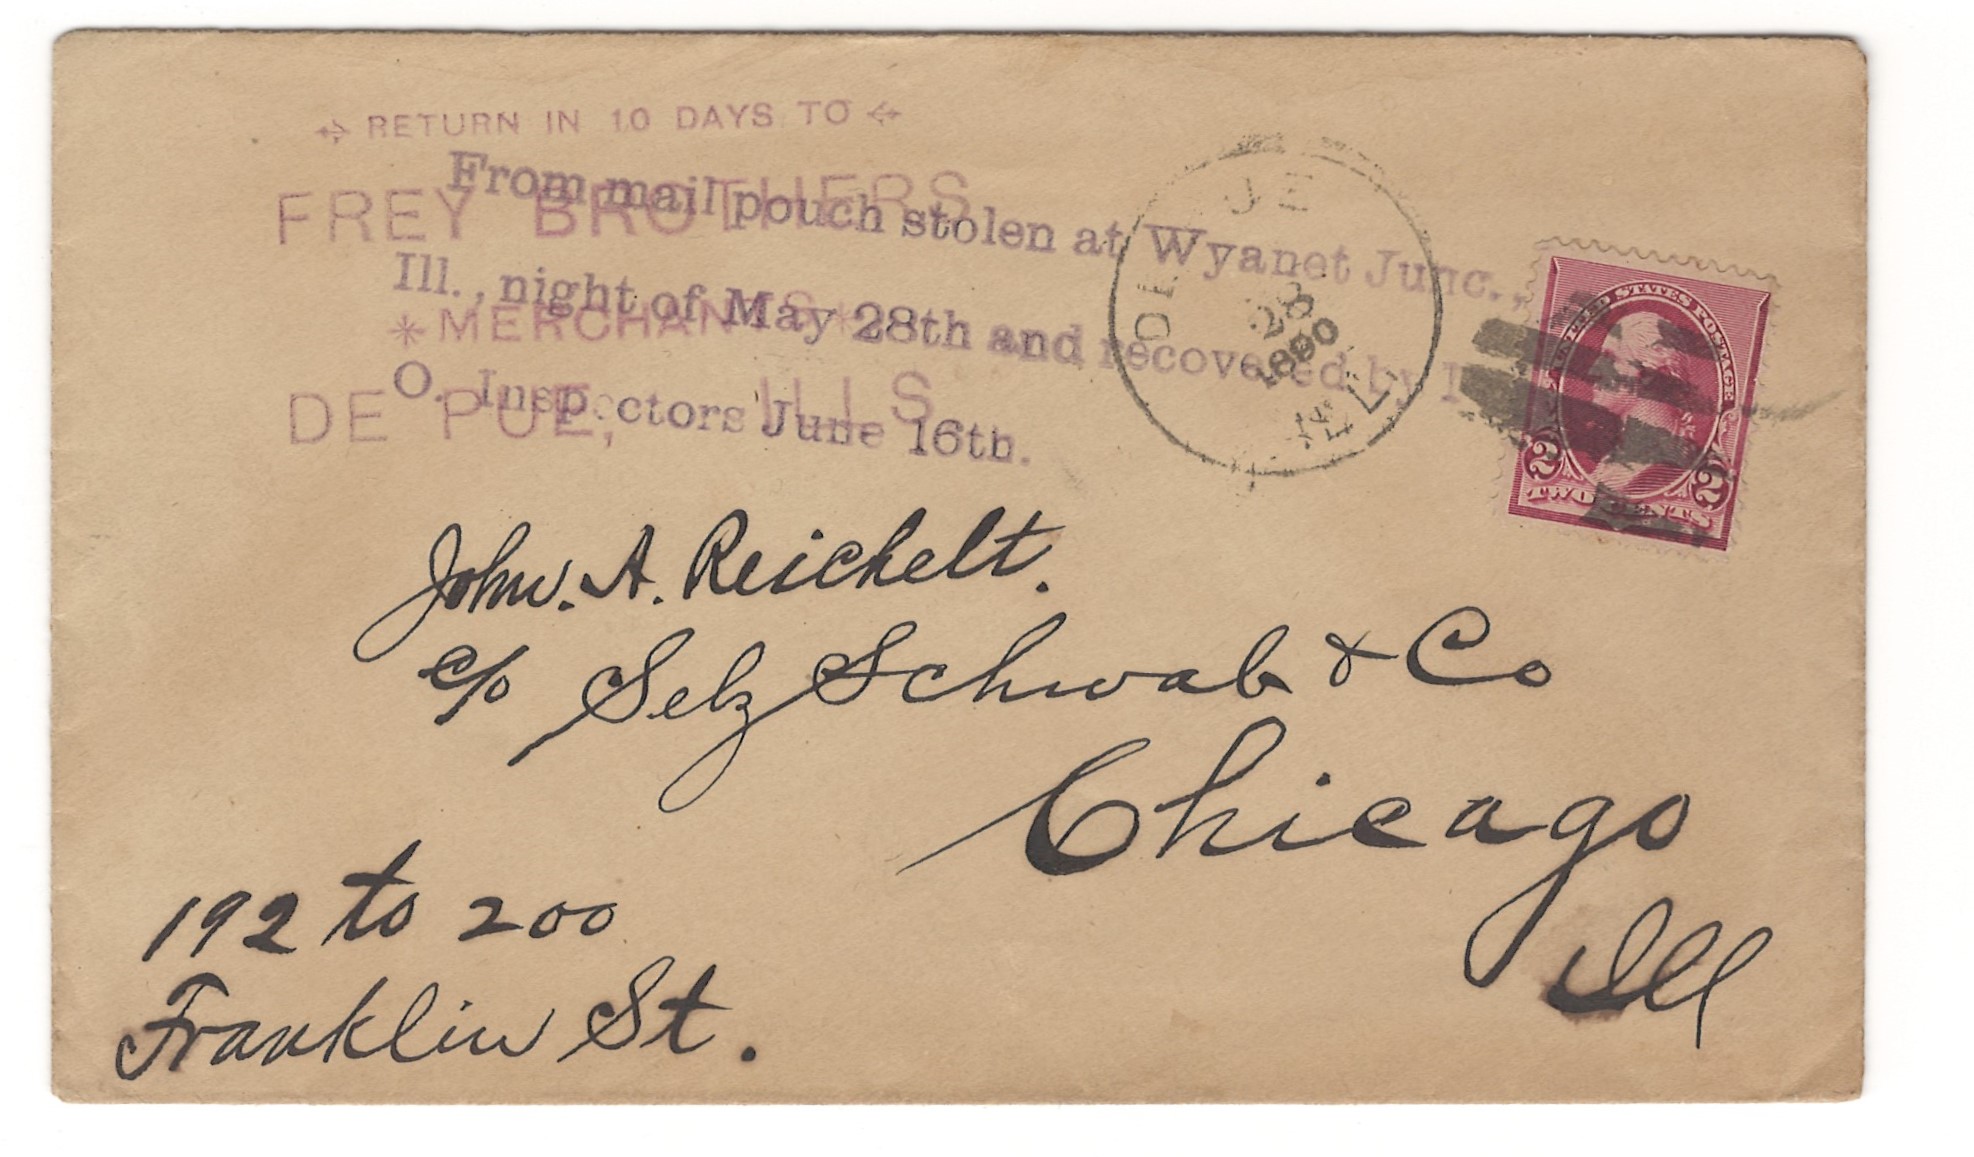 RETURN IN 10 DAYS TO
FREY BROTHERS
*MERCHANTS*
DE PUE, ILLS.
From mail pouch stolen at Wyanet Junc.,
Ill., night of May 28th and recovered by P.
O. Inspectors June 16th.
DE PUE
28
1890
ILL.
UNITED STATES POSTAGE
2 2
TWO CENTS
John. A. Reichelt.
c/o Selz Schwab & Co
Chicago
Ill
192 to 200
Franklin St.